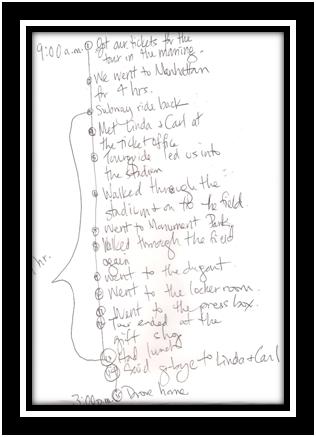 9:00 a.m. Got our tickets for the
tour in the morning.
We went to Manhattan
for 4 hrs.
Subway ride back
Met Linda & Carl at
the ticket office
Tourguide led us into
the stadium
Walked through the
stadium & on to the field
Went to Monument Park
Walked through the field
again
Went to the dugout.
Went to the locker room.
Went to the press box.
Tour ended at the
gift shop
hr.
Had lunch
Said g-bye to Linda & Carl
3:00 p.m. Drove home